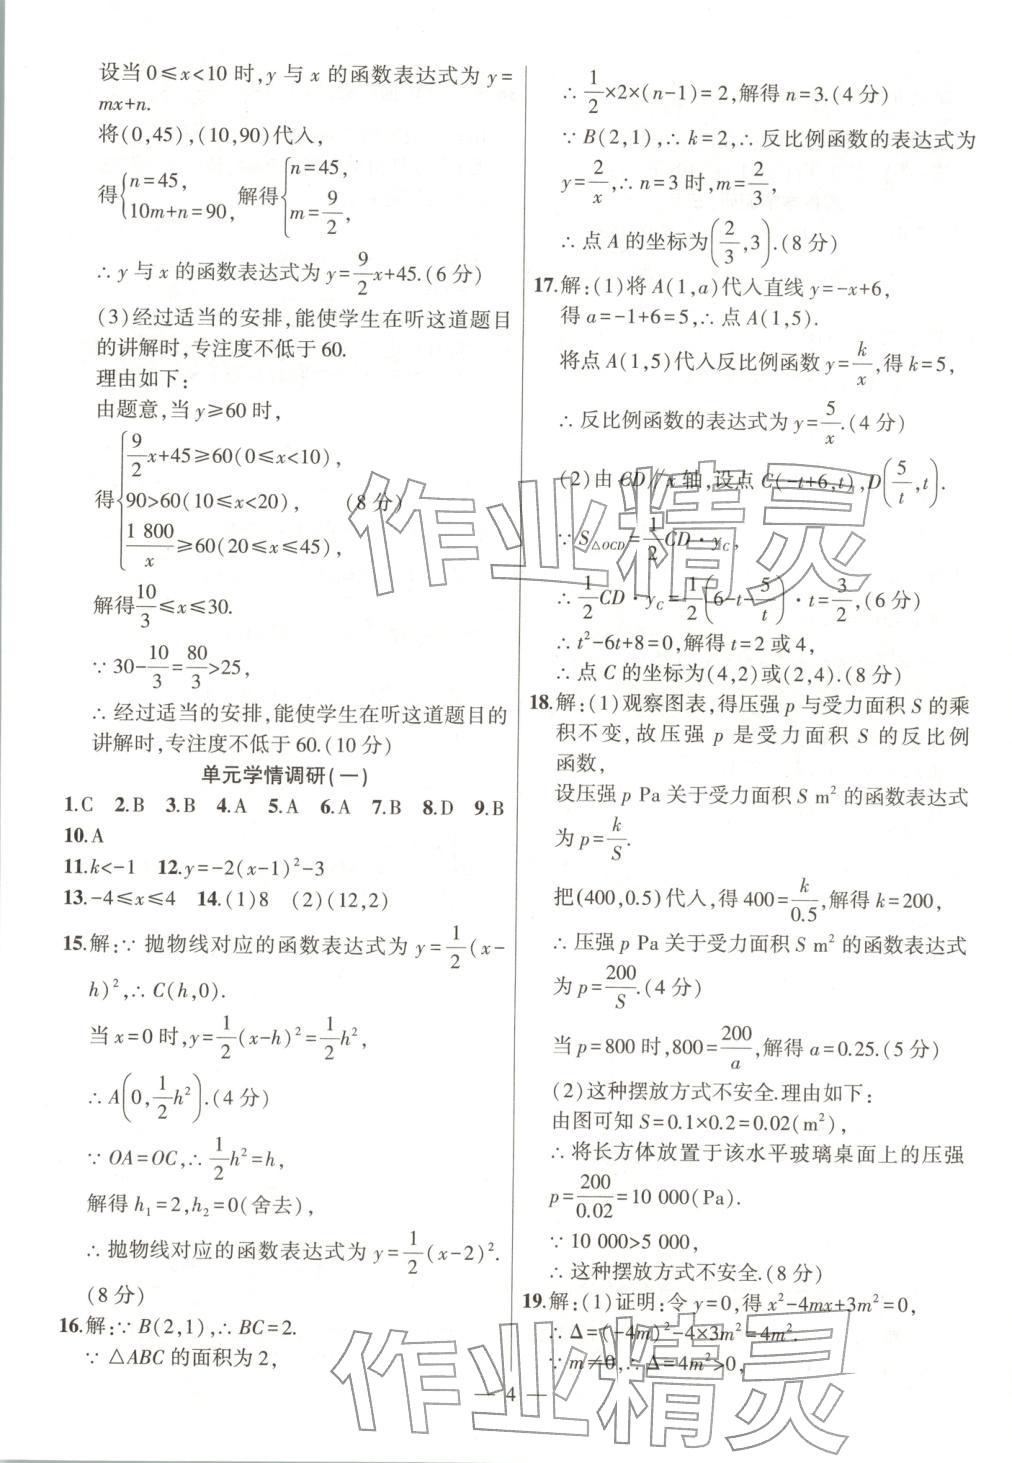 设当 0≤x<10 时,y 与 x 的函数表达式为 y=
mx+n.
将(0,45),(10,90)代入,
得{n=45, 10m+n=90, 解得{n=45, m=9/2,
∴ y 与 x 的函数表达式为 y=9/2x+45.(6 分)
(3)经过适当的安排,能使学生在听这道题目
的讲解时,专注度不低于 60.
理由如下:
由题意,当 y≥60 时,
得{9/2x+45≥60(0≤x<10), 90>60(10≤x<20), 1 800/x≥60(20≤x≤45), (8 分)
解得10/3≤x≤30.
∵ 30-10/3=80/3>25,
∴ 经过适当的安排,能使学生在听这道题目的
讲解时,专注度不低于 60.(10 分)
单元学情调研(一)
1.C 2.B 3.B 4.A 5.A 6.A 7.B 8.D 9.B
10.A
11.k<-1 12.y=-2(x-1)²-3
13.-4≤x≤4 14.(1)8 (2)(12,2)
15.解:∵ 抛物线对应的函数表达式为 y=1/2(x-
h)²,∴ C(h,0).
当 x=0 时,y=1/2(x-h)²=1/2h²,
∴ A(0,1/2h²).(4 分)
∵ OA=OC,∴ 1/2h²=h,
解得 h₁=2,h₂=0(舍去),
∴ 抛物线对应的函数表达式为 y=1/2(x-2)².
(8 分)
16.解:∵ B(2,1),∴ BC=2.
∵ △ABC 的面积为 2,
∴ 1/2×2×(n-1)=2,解得 n=3.(4 分)
∵ B(2,1),∴ k=2,∴ 反比例函数的表达式为
y=2/x,∴ n=3 时,m=2/3,
∴ 点 A 的坐标为(2/3,3).(8 分)
17.解:(1)将 A(1,a)代入直线 y=-x+6,
得 a=-1+6=5,∴ 点 A(1,5).
将点 A(1,5)代入反比例函数 y=k/x,得 k=5,
∴ 反比例函数的表达式为 y=5/x.(4 分)
(2)由 CD∥x 轴,设点 C(-t+6,t),D(5/t,t).
∵ S△OCD=1/2CD·y_C,
∴ 1/2CD·y_C=1/2(6-t-5/t)·t=3/2,(6 分)
∴ t²-6t+8=0,解得 t=2 或 4,
∴ 点 C 的坐标为(4,2)或(2,4).(8 分)
18.解:(1)观察图表,得压强 p 与受力面积 S 的乘
积不变,故压强 p 是受力面积 S 的反比例
函数,
设压强 p Pa 关于受力面积 S m² 的函数表达式
为 p=k/S.
把(400,0.5)代入,得 400=k/0.5,解得 k=200,
∴ 压强 p Pa 关于受力面积 S m² 的函数表达式
为 p=200/S.(4 分)
当 p=800 时,800=200/a,解得 a=0.25.(5 分)
(2)这种摆放方式不安全.理由如下:
由图可知 S=0.1×0.2=0.02(m²),
∴ 将长方体放置于该水平玻璃桌面上的压强
p=200/0.02=10 000(Pa).
∵ 10 000>5 000,
∴ 这种摆放方式不安全.(8 分)
19.解:(1)证明:令 y=0,得 x²-4mx+3m²=0,
∴ Δ=(-4m)²-4×3m²=4m².
∵ m≠0,∴ Δ=4m²>0,
— 4 —
作业精灵
作业精灵